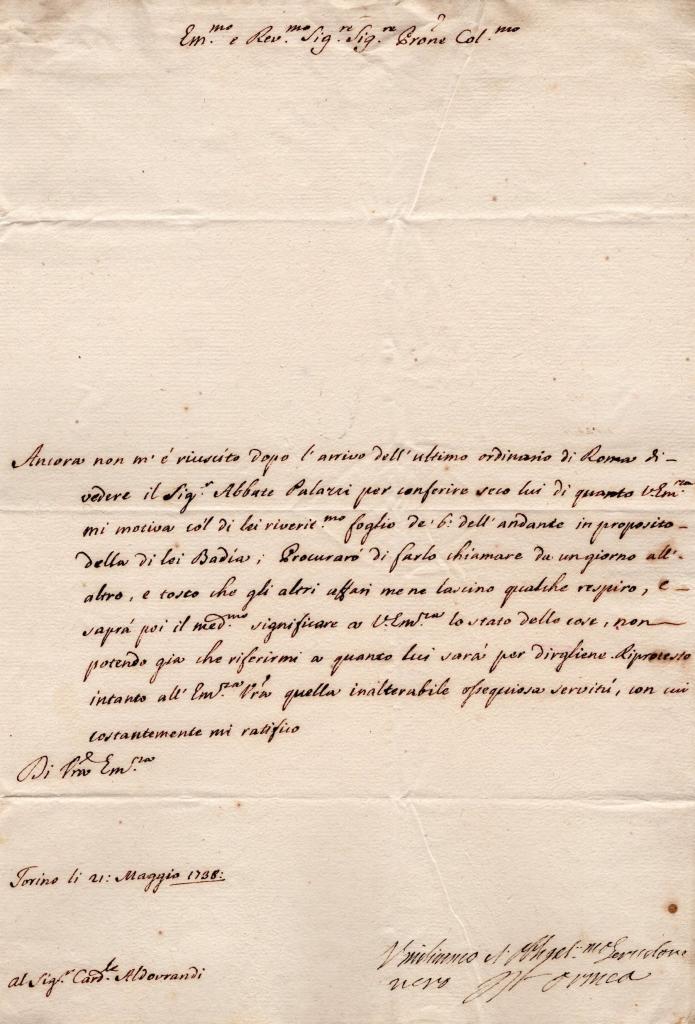 Em.mo e Rev.mo Sig.re Sig.re Prone Col.mo
Ancora non m'é riuscito dopo l'arrivo dell'ultimo ordinario di Roma di-
vedere il Sig.r Abbate Palazzi per conferire seco lui di quanto V.Em.za
mi motiva co'l di lei riverit.mo foglio de' 6: dell'andante in proposito-
della di lei Badía; Procuraró di farlo chiamare da un giorno all'-
altro, e tosto che gli altri affari me ne lascino qualche respiro, e-
saprá poi il med.mo significare a V.Em.za lo stato delle cose, non
potendo gia che riferirmi a quanto lui sará per dirgliene. Riprotesto
intanto all'Em.za Vra quella inalterabile ossequiosa servitú, con cui
costantemente mi ratifico
Di Vra Em.za
Torino li 21: Maggio 1738:
Servitore
al Sig.r Card.le Aldovrandi
vero D'Ormea